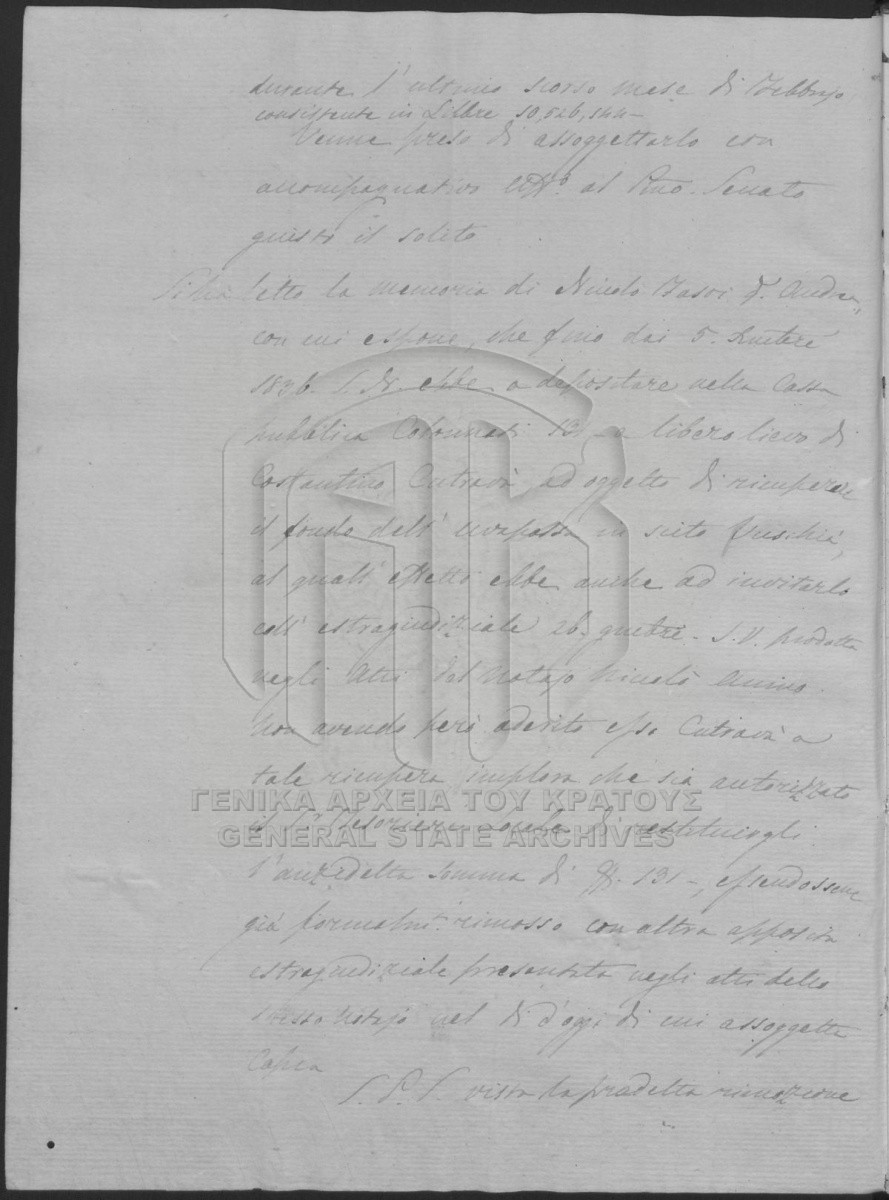 durante l'ultimo scorso mese di Febbrajo
consistente in Libbre 10,526,144-
Venne preso di assoggettarlo con
accompagnatorio al Pmo. Senato
giusto il solito
Si ha letto la memoria di Nicolò q. Andrea,
con cui espone, che fino dai 5.
1836. S. N. ebbe a depositare nella Cassa
pubblica Colonnati 131- a libero lievo di
Costantino Cutravà ad oggetto di ricuperare
il fondo dell' uvapassa in sito
al quall' effetto ebbe anche ad invitarlo
coll' estragiudiziale 26. S.V. prodotta
negli Atti del Notajo Nicolò
Non avendo però aderito esso Cutravà a
tale ricupera implora che sia autorizzato
il Sr. Tesoriere locale di restituirgli
l'anzedetta somma di 131-, essendossene
già formalmte. rimosso con altra apposita
estragiudiziale presentata negli atti dello
stesso Notajo nel di d'oggi di cui assoggetta
Copia
S. P. S. vista la predetta rimozione
ΓΕΝΙΚΑ ΑΡΧΕΙΑ ΤΟΥ ΚΡΑΤΟΥΣ
GENERAL STATE ARCHIVES